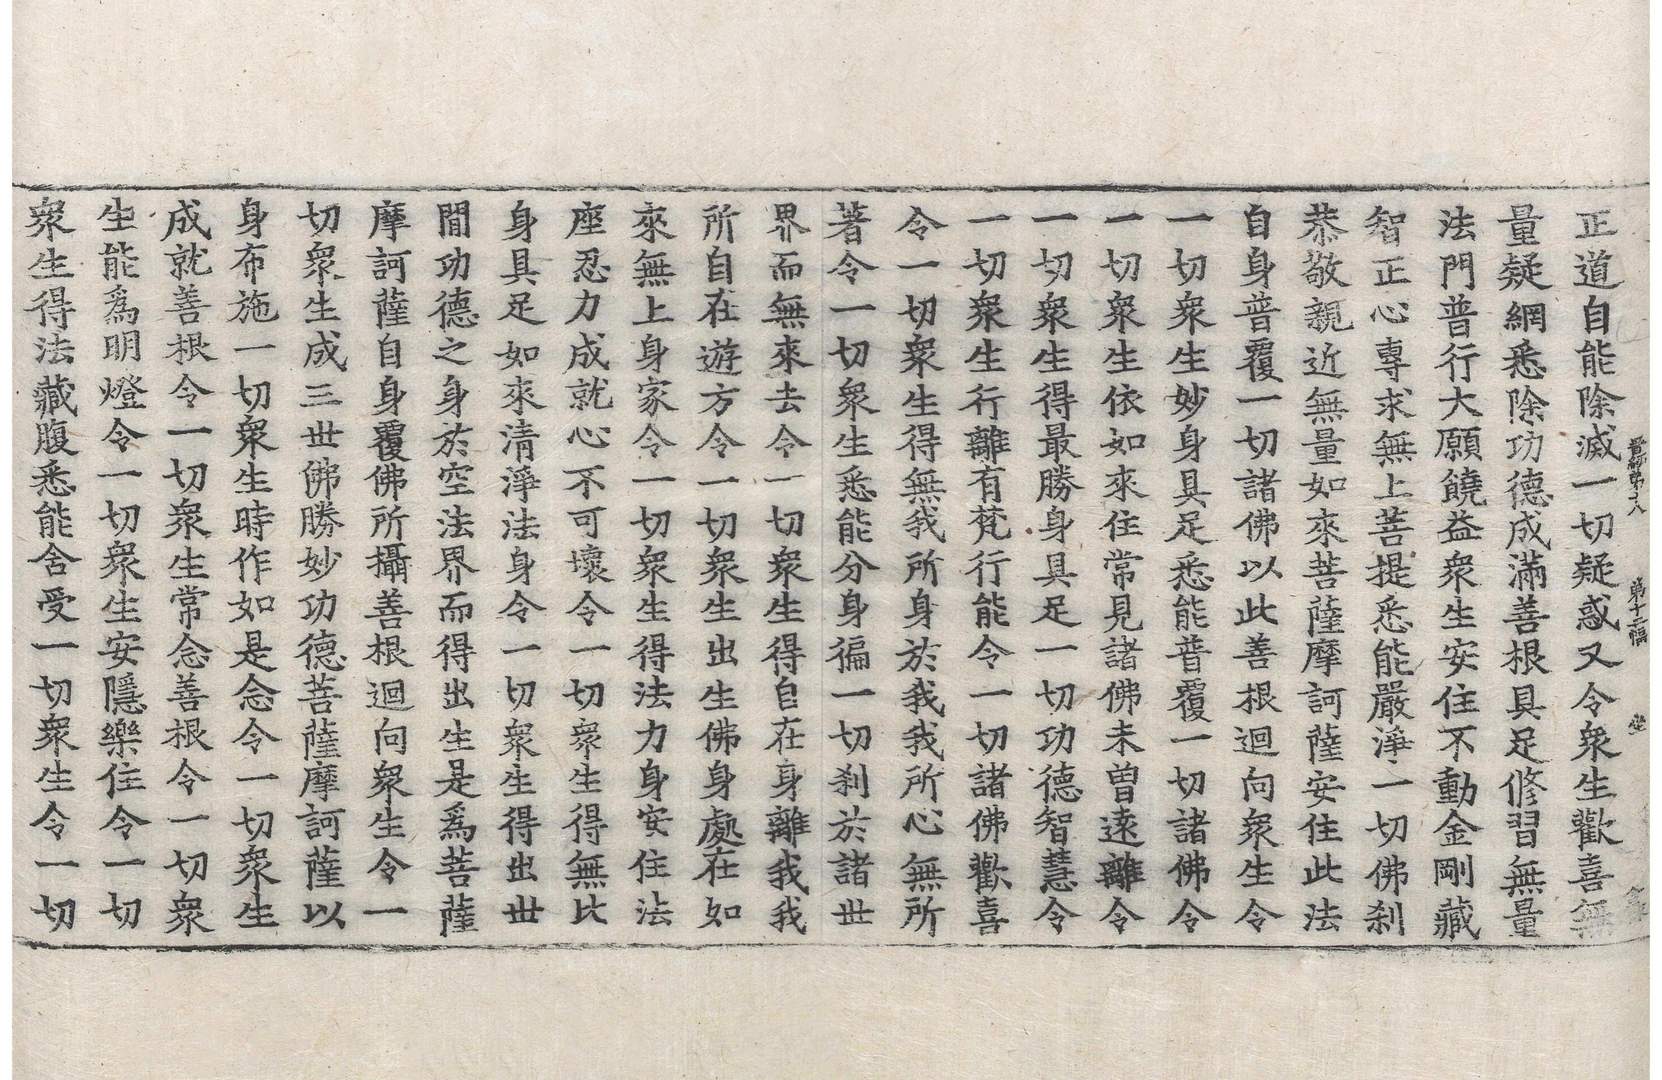 正道自能除滅一切疑惑又令衆生歡喜無
量疑網悉除功德成滿善根具足修習無量
法門普行大願饒益衆生安住不動金剛藏
智正心專求無上菩提悉能嚴淨一切佛刹
恭敬親近無量如來菩薩摩訶薩安住此法
自身普覆一切諸佛以此善根迴向衆生令
一切衆生妙身具足悉能普覆一切諸佛令
一切衆生依如來住常見諸佛未曽遠離令
一切衆生得最勝身具足一切功德智慧令
一切衆生行離有梵行能令一切諸佛歡喜
令一切衆生得無我所身於我我所心無所
著令一切衆生悉能分身徧一切刹於諸世
界而無來去令一切衆生得自在身離我我
所自在遊方令一切衆生出生佛身處在如
來無上身家令一切衆生得法力身安住法
座忍力成就心不可壞令一切衆生得無比
身具足如來清淨法身令一切衆生得出世
間功德之身於空法界而得出生是爲菩薩
摩訶薩自身覆佛所攝善根迴向衆生令一
切衆生成三世佛勝妙功德菩薩摩訶薩以
身布施一切衆生時作如是念令一切衆生
成就善根令一切衆生常念善根令一切衆
生能爲明燈令一切衆生安隱樂住令一切
衆生得法藏腹悉能舍受一切衆生令一切
第十二幅